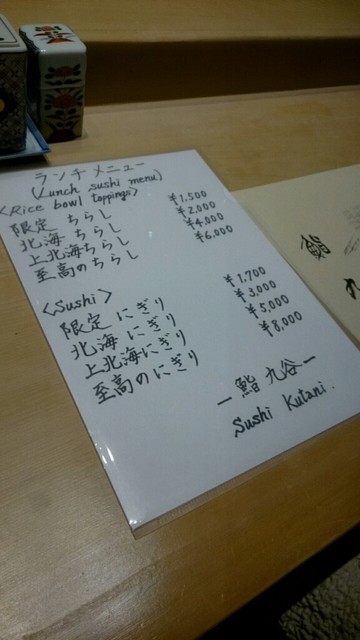 ランチメニュー
(Lunch sushi menu)
<Rice bowl toppings>
限定 ちらし ¥1,500
北海 ちらし ¥2,000
上北海ちらし ¥4,000
至高のちらし ¥6,000
<Sushi>
限定 にぎり ¥1,700
北海 にぎり ¥3,000
上北海にぎり ¥5,000
至高のにぎり ¥8,000
ー鮨 九谷ー
Sushi Kutani.
鮨
九